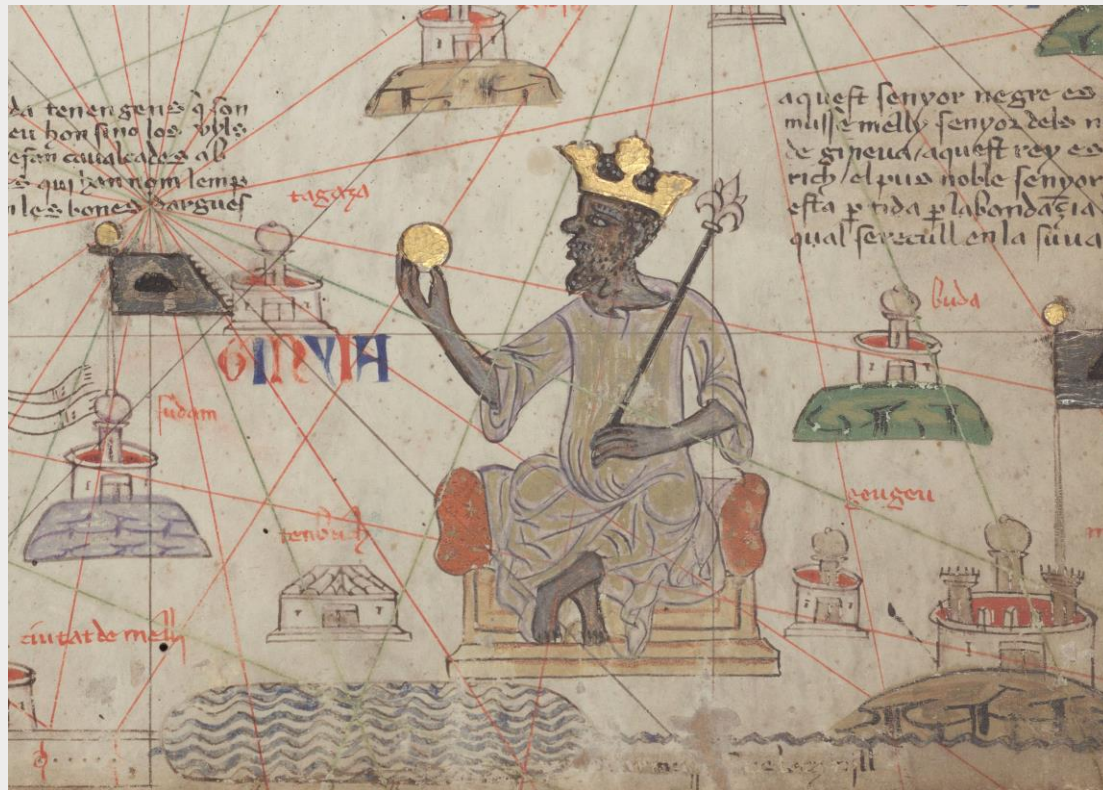 da tenen gens q̃ son
eu hon sino los vyls
efan caualcades ab
qui han nom lemp
les bones dargues
aquest senyor negre es
musse melly senyor dels n
de gineua aquest rey es
rich el pus noble senyor
esta ptida p labondaçia
qual serecull en la suua
tagaza
buda
GINYIA
sudam
geugeu
tenbuch
ciutat de melly